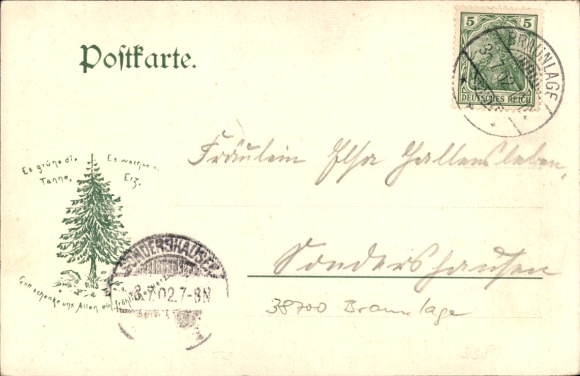 Postkarte.
5 5
DEUTSCHES REICH
BRAUNLAGE
3.7.02
Es grüne die Es wachse
Tanne, Erz.
Gott schenke uns Allen ein fröhliches
Fräulein Elsa Hallensleben,
SONDERSHAUSEN
Sondershausen
3.7.02.7-8N
38700 Braunlage